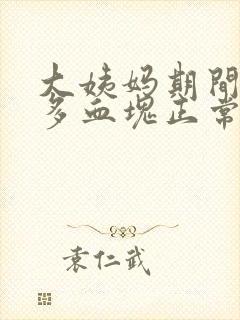 大姨妈期間
多血塊正常
袁仁武